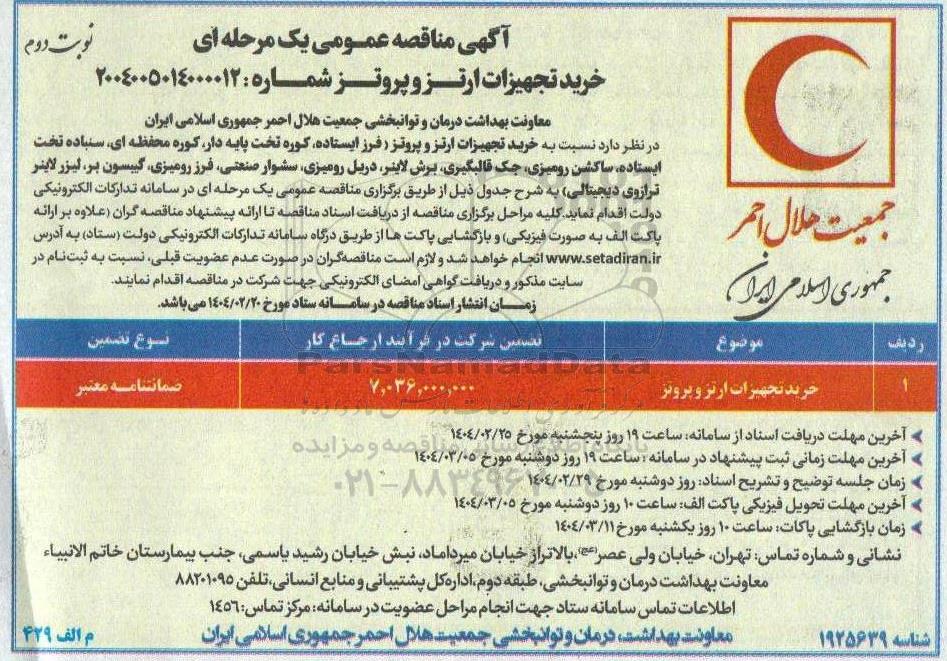 آگهی مناقصه عمومی یک مرحله ای
نوبت دوم
خرید تجهیزات ارتز و پروتز شماره: ۲۰۰۴۰۰۵۰۱۴۰۰۰۰۱۲
معاونت بهداشت درمان و توانبخشی جمعیت هلال احمر جمهوری اسلامی ایران
در نظر دارد نسبت به خرید تجهیزات ارتز و پروتز (فرز ایستاده، کوره تخت پایه دار، کوره محفظه ای، سنباده تخت
ایستاده، ساکشن رومیزی، جک قالبگیری، برش لاینر، دریل رومیزی، سشوار صنعتی، فرز رومیزی، گیپسون بر، لیزر لاینر
ترازوی دیجیتالی) به شرح جدول ذیل از طریق برگزاری مناقصه عمومی یک مرحله ای در سامانه تدارکات الکترونیکی
دولت اقدام نماید. کلیه مراحل برگزاری مناقصه از دریافت اسناد مناقصه تا ارائه پیشنهاد مناقصه گران (علاوه بر ارائه
پاکت الف به صورت فیزیکی) و بازگشایی پاکت ها از طریق درگاه سامانه تدارکات الکترونیکی دولت (ستاد) به آدرس
www.setadiran.ir انجام خواهد شد و لازم است مناقصه‌گران در صورت عدم عضویت قبلی، نسبت به ثبت‌نام در
سایت مذکور و دریافت گواهی امضای الکترونیکی جهت شرکت در مناقصه اقدام نمایند.
زمـان انتشار اسناد مناقصه در سامـانه ستاد مورخ ۱۴۰۴/۰۲/۲۰ می‌باشد.
جمعیت هلال احمر
جمهوری اسلامی ایران
ردیف موضوع تضمین شرکت در فرآیند ارجاع کار نوع تضمین
۱ خرید تجهیزات ارتز و پروتز ۷,۰۳۶,۰۰۰,۰۰۰ ضمانتنامه معتبر
ParsNamadData
آخرین مهلت دریافت اسناد از سامانه: ساعت ۱۹ روز پنجشنبه مورخ ۱۴۰۴/۰۲/۲۵
آخرین مهلت زمانی ثبت پیشنهاد در سامانه: ساعت ۱۹ روز دوشنبه مورخ ۱۴۰۴/۰۳/۰۵
زمان جلسه توضیح و تشریح اسناد: روز دوشنبه مورخ ۱۴۰۴/۰۲/۲۹
آخرین مهلت تحویل فیزیکی پاکت الف: ساعت ۱۰ روز دوشنبه مورخ ۱۴۰۴/۰۳/۰۵
زمان بازگشایی پاکات: ساعت ۱۰ روز یکشنبه مورخ ۱۴۰۴/۰۳/۱۱
نشانی و شماره تماس: تهران، خیابان ولی عصر(عج)، بالاتر از خیابان میرداماد، نبش خیابان رشید یاسمی، جنب بیمارستان خاتم الانبیاء
معاونت بهداشت درمان و توانبخشی، طبقه دوم، اداره‌کل پشتیبانی و منابع انسانی، تلفن ۸۸۲۰۱۰۹۵
اطلاعات تماس سامانه ستاد جهت انجام مراحل عضویت در سامانه: مرکز تماس: ۱۴۵۶
شناسه ۱۹۲۵۶۳۹
معاونت بهداشت، درمان و توانبخشی جمعیت هلال احمر جمهوری اسلامی ایران
م الف ۴۲۹